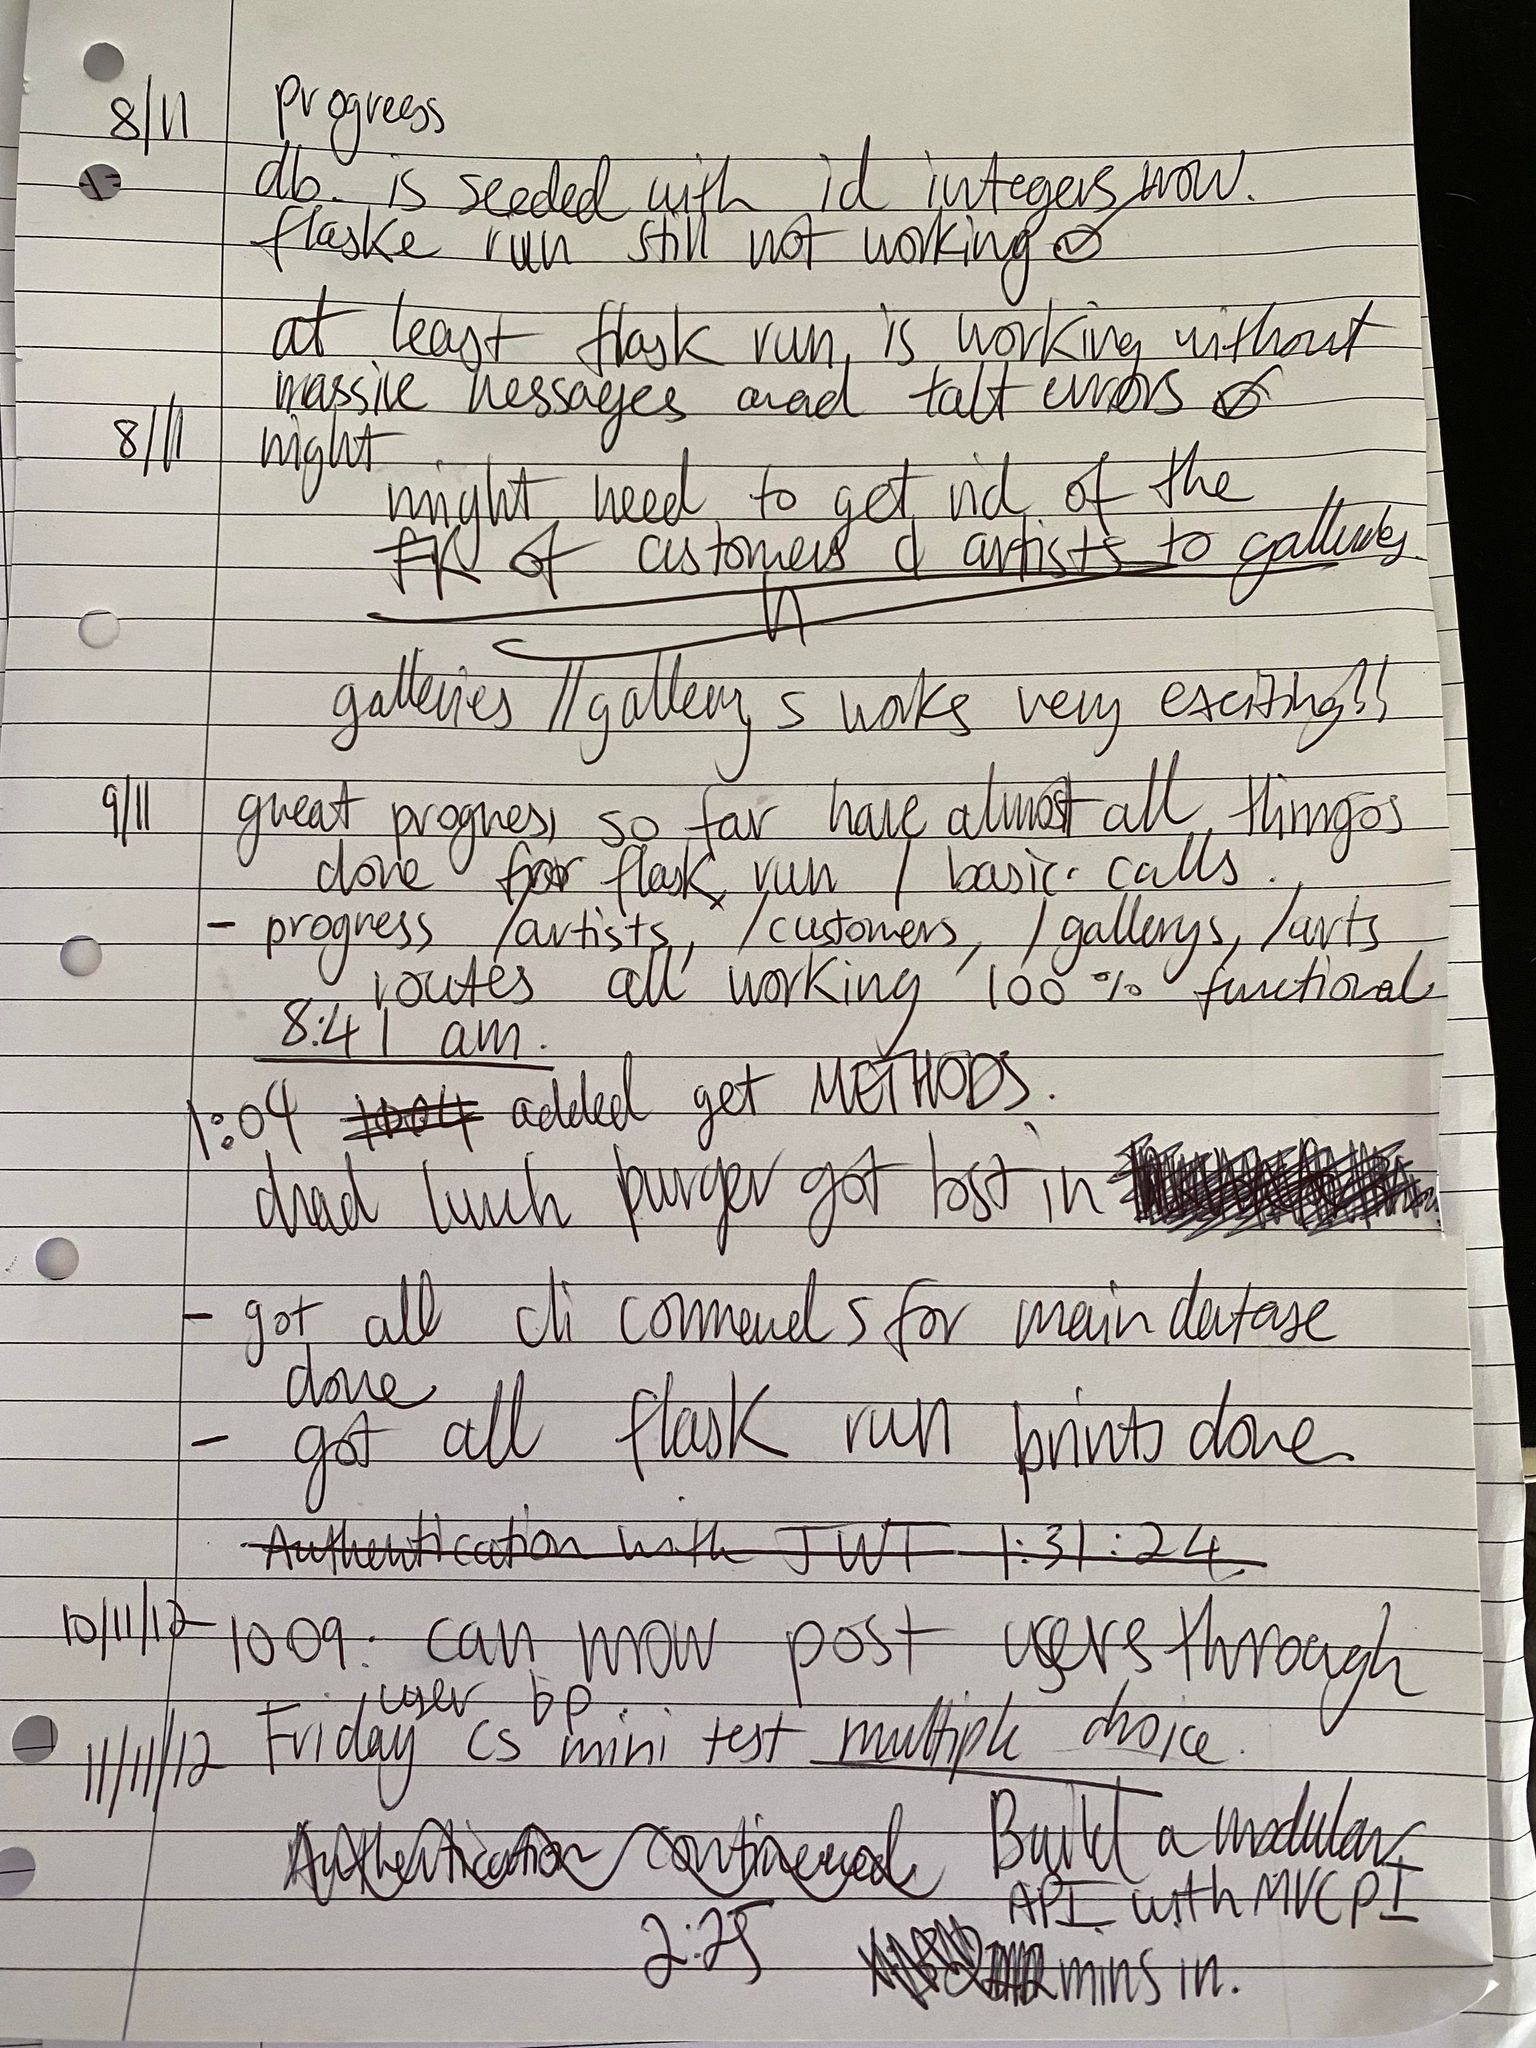 8/11 progress
db. is seeded with id integers now.
flaske run still not working
at least flask run is working without
massive messages and errors
8/11 night
might need to get rid of the
FK of customers & artists to galleries
galleries // gallery s works very exciting!!
9/11 great progress so far have almost all things
done for flask run / basic calls.
- progress /artists, /customers, /gallerys, /arts
routes all working 100% functional
8:41 am.
1:04 1004 added get METHODS.
lunch burger got lost in
- got all cli commends for main datase
done
- got all flask run prints done
Authentication with JWT 1:31:24
10/11/12 1009: can now post users through
user bp.
11/11/12 Friday CS mini test multiple choice.
Authentication continued
2:25
Build a modular
API with MVC P I
mins in.